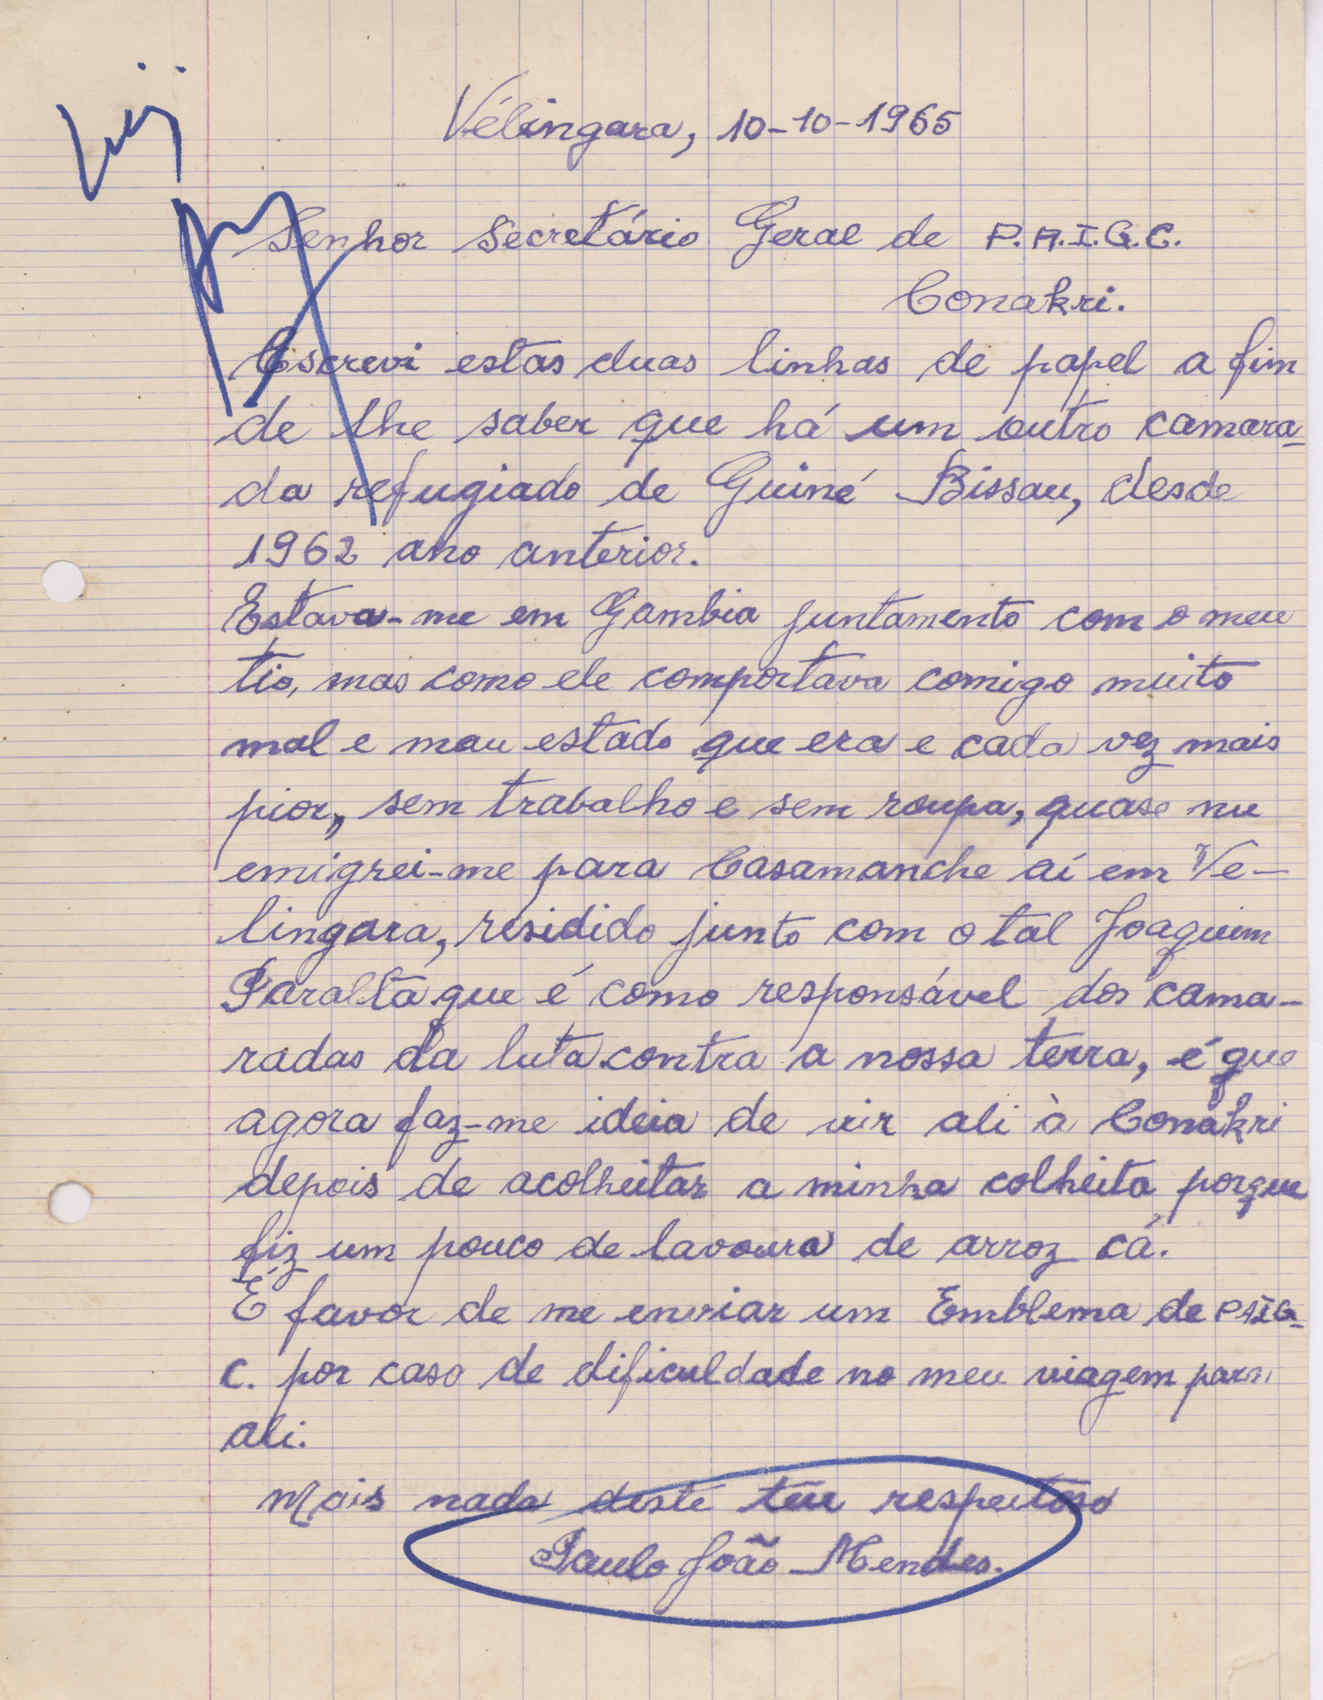 Vélingara, 10-10-1965
Senhor Secretário Geral de P.A.I.G.C.
Conakri.
Escrevi estas duas linhas de papel a fim
de lhe saber que há um outro camara-
da refugiado de Guiné Bissau, desde
1962 ano anterior.
Estava-me em Gambia juntamento com o meu
tio, mas como ele comportava comigo muito
mal e mau estado que era e cada vez mais
pior, sem trabalho e sem roupa, quase nu
emigrei-me para Casamanche aí em Ve-
lingara, residido junto com o tal Joaquim
Paralta que é como responsável dos cama-
radas da luta contra a nossa terra, é que
agora faz-me ideia de vir ali à Conakri
depois de acolheitar a minha colheita porque
fiz um pouco de lavoura de arroz cá.
É favor de me enviar um Emblema de PAIG-
C. por caso de dificuldade no meu viagem para
ali.
Mais nada deste teu respeitoso
Paulo João Mendes.